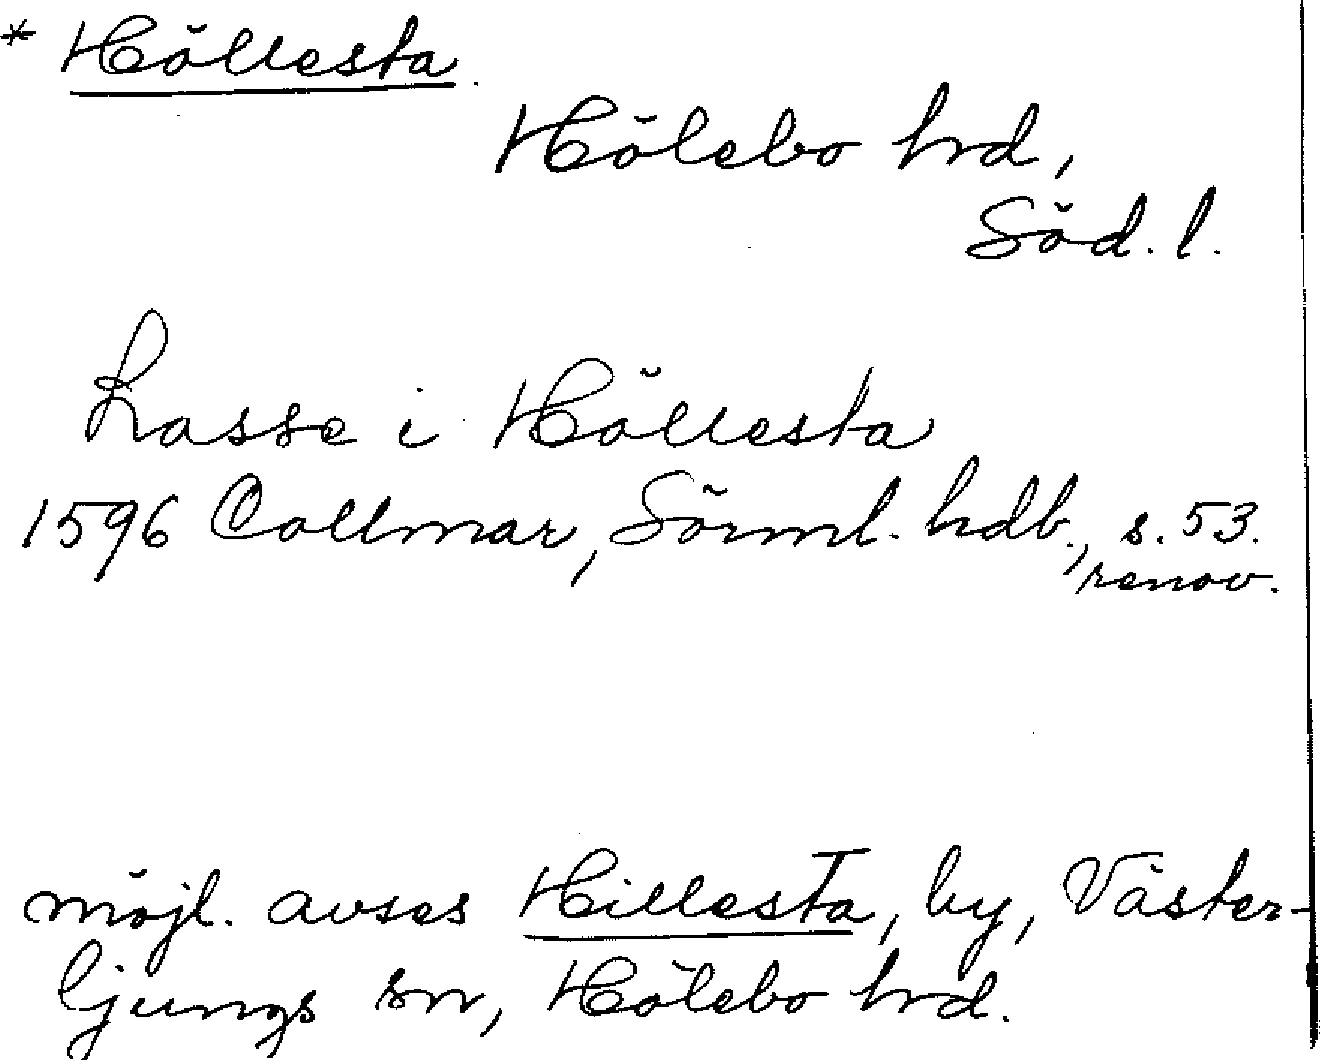 * Höllesta.
Hölebo hrd,
Söd. l.
Lasse i Höllesta
1596 Collmar, Sörml. hdb., s. 53.
renov.
möjl. avses Hillesta, by, Väster-
ljungs sn, Hölebo hrd.